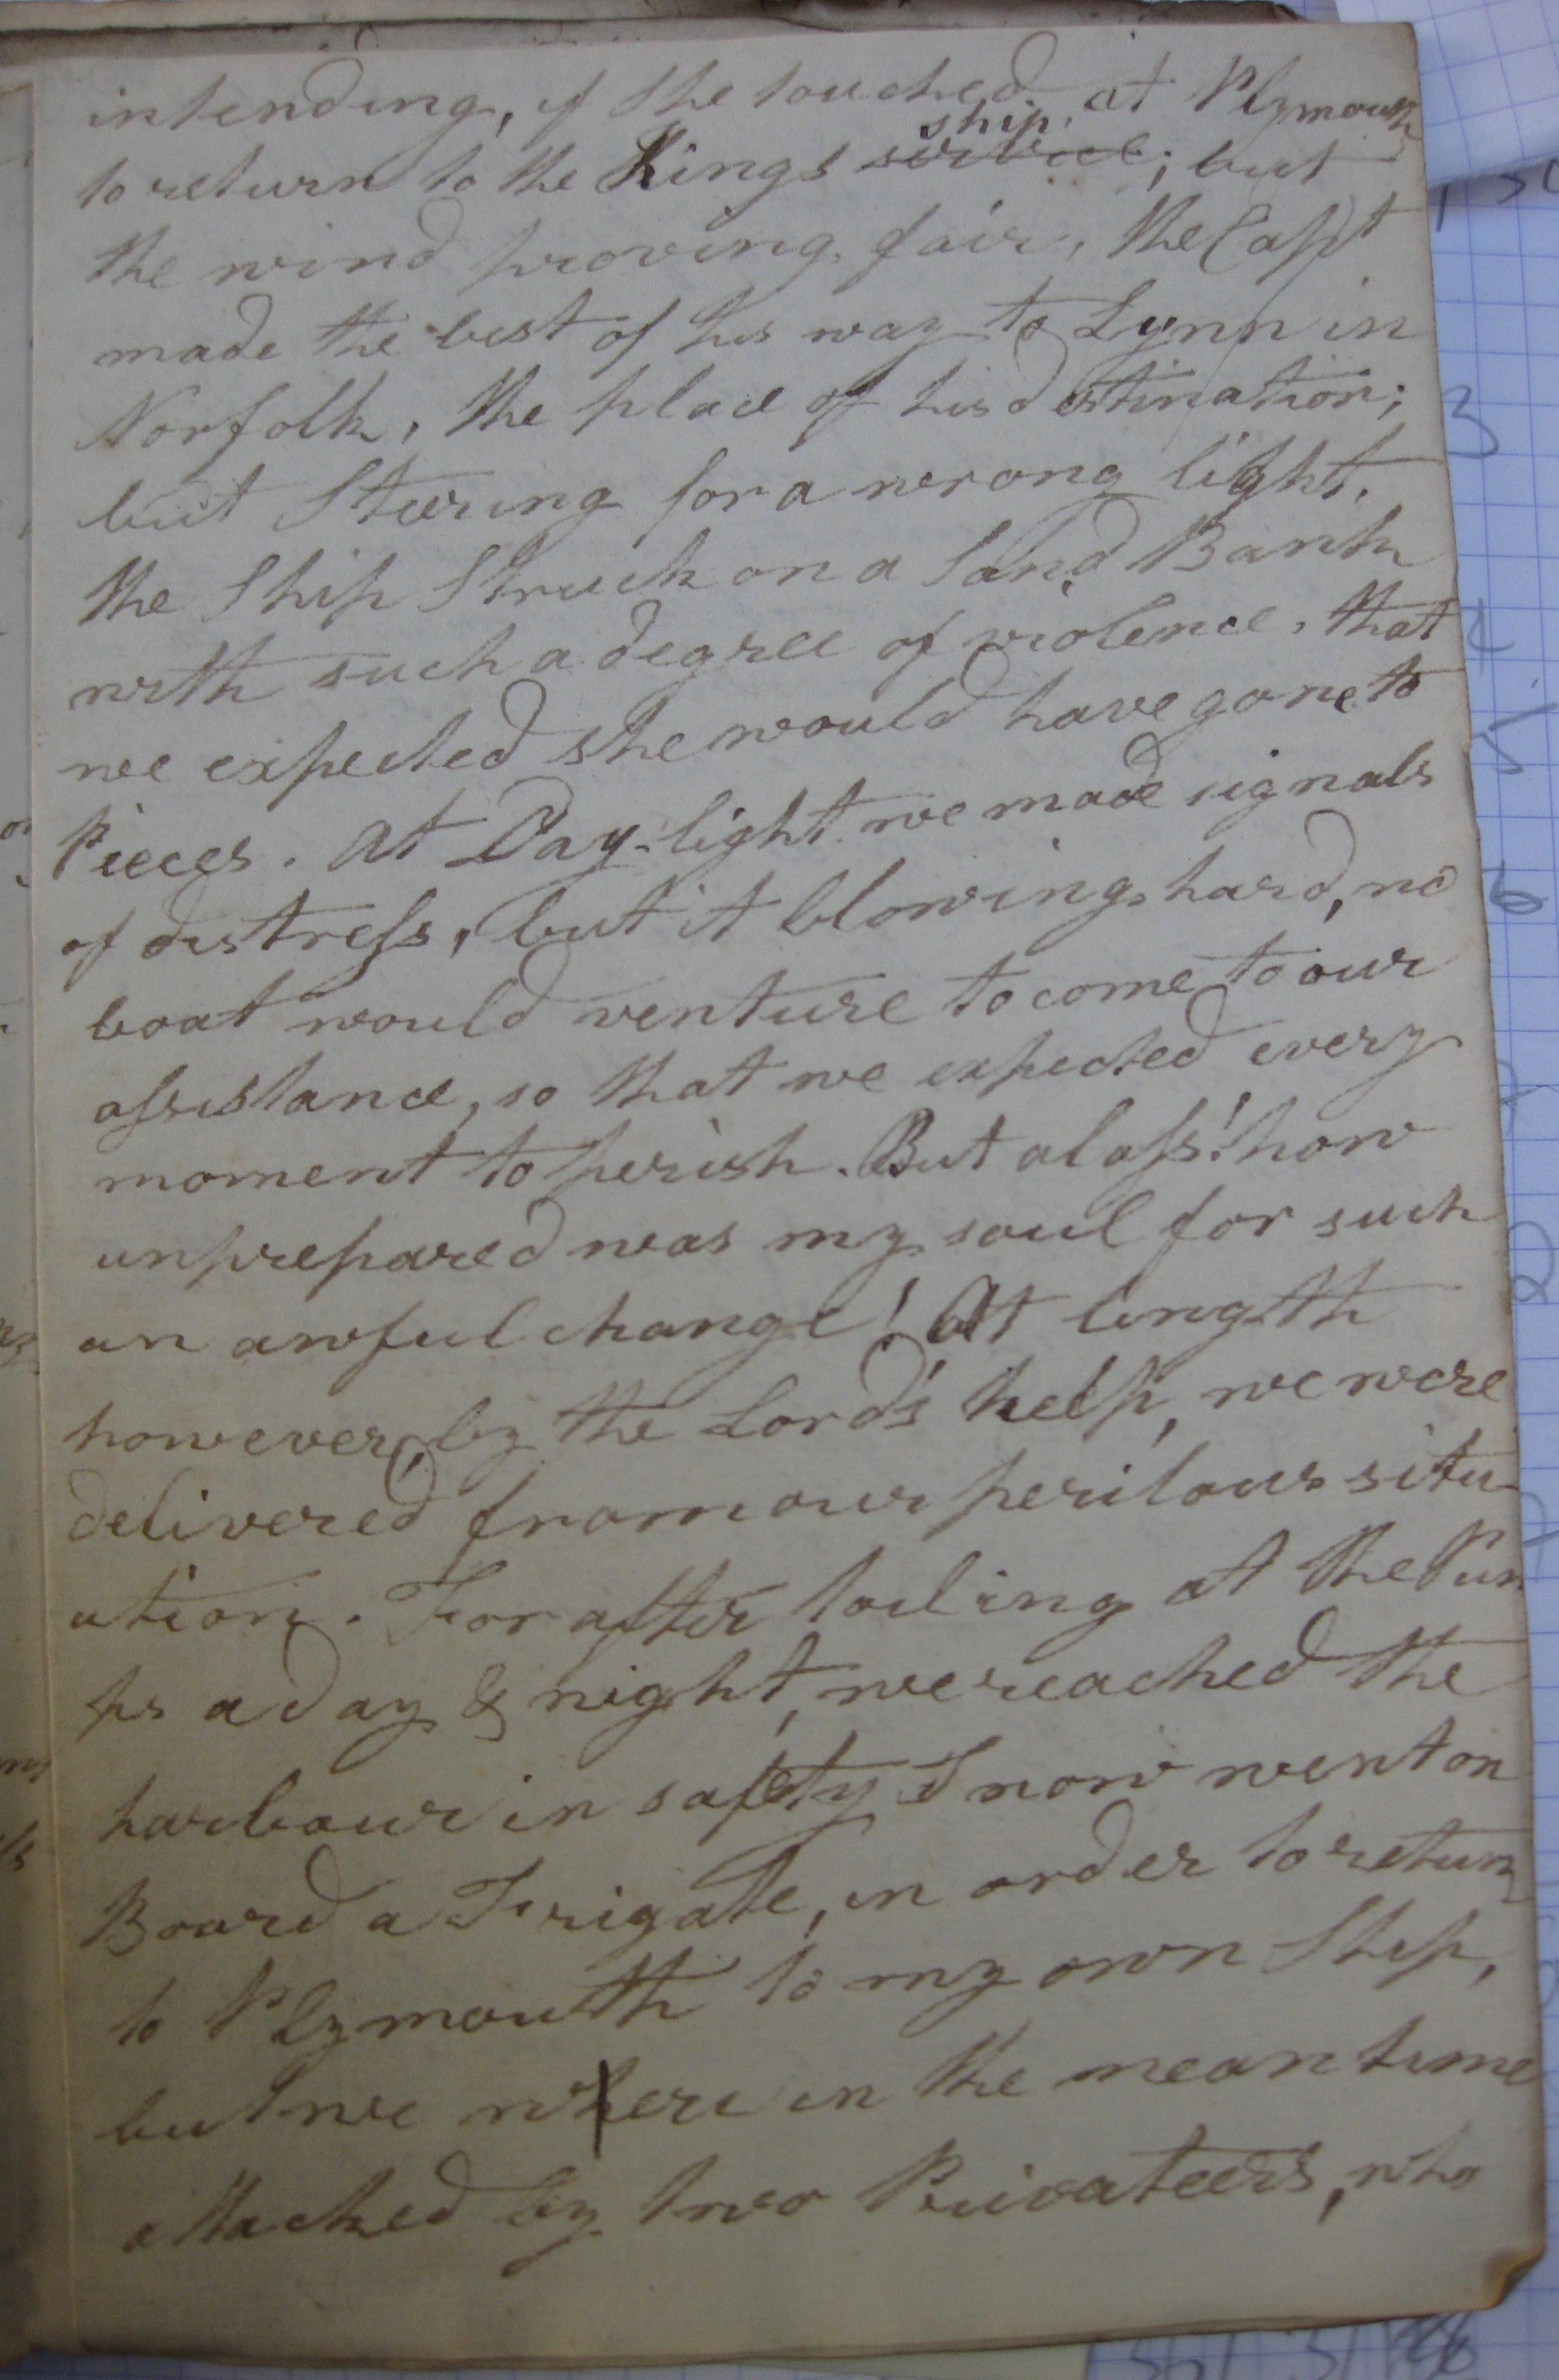 intending, if she touched at Plymouth
to return to the Kings service ship; but
the wind proving fair, the Capt
made the best of his way to Lynn in
Norfolk, the place of his destination;
but Steering for a wrong light,
the Ship Struck on a Sand Bank
with such a degree of violence, that
we expected she would have gone to
Pieces. At Day-light we made signals
of distreſs, but it blowing hard, no
boat would venture to come to our
aſsistance, so that we expected every
moment to perish. But alaſs! how
unprepared was my soul for such
an awful change! At length
however, by the Lord's help, we were
delivered from our perilous situ-
ation. For after toiling at the Pum
ps a day & night, we reached the
harbour in safety I now went on
Board a Frigate, in order to return
to Plymouth to my own Ship,
but we where in the mean time
attacked by two Privateers, who
3
4
5
6